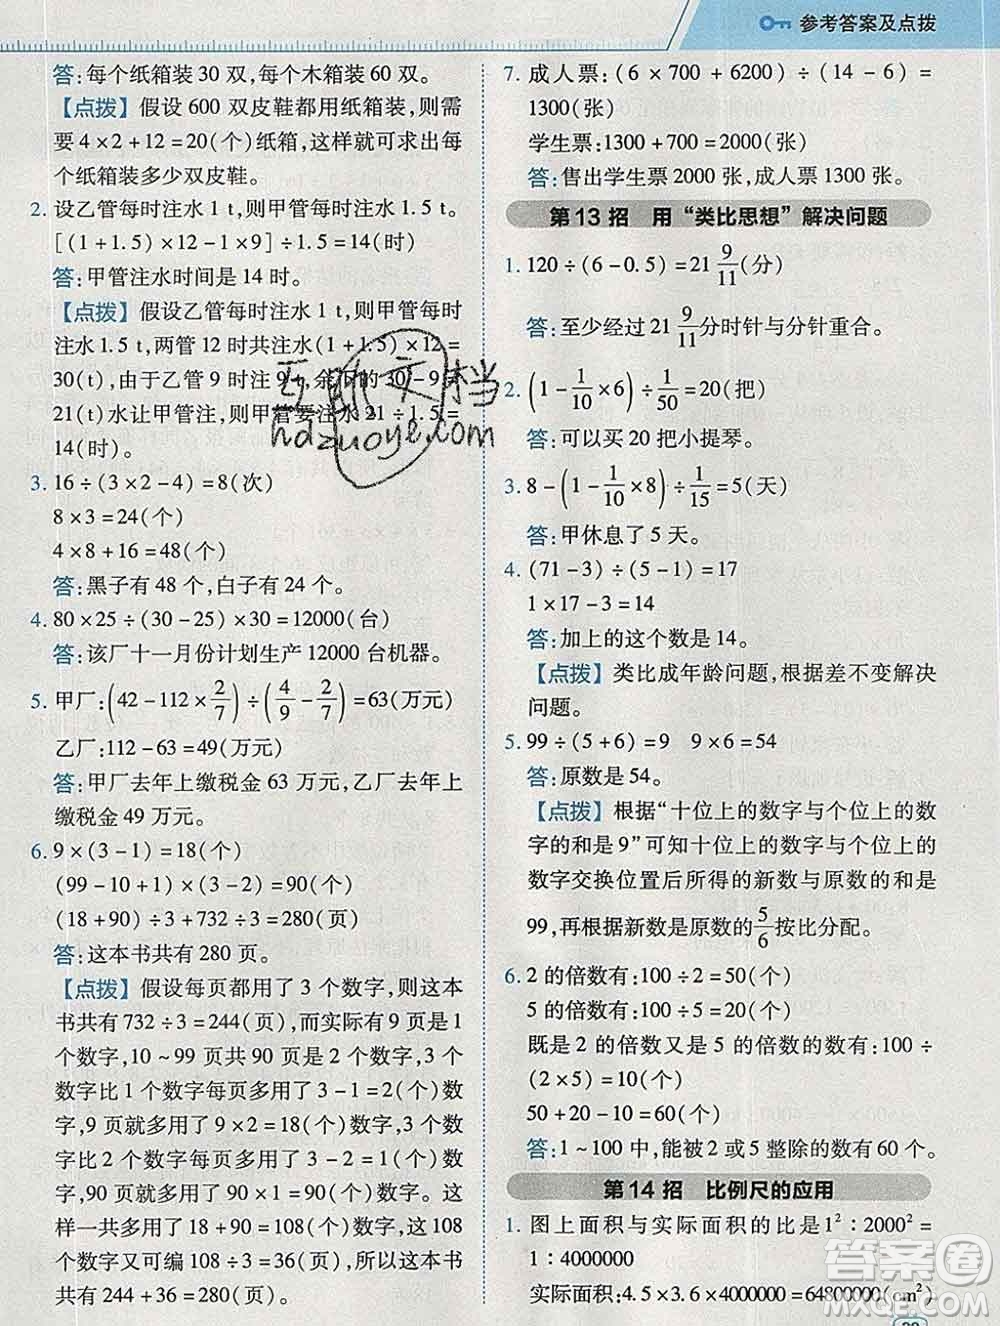 参考答案及点拨
答:每个纸箱装 30 双,每个木箱装 60 双。
【点拨】假设 600 双皮鞋都用纸箱装,则需
要 4×2+12=20(个)纸箱,这样就可求出每
个纸箱装多少双皮鞋。
2. 设乙管每时注水 1 t,则甲管每时注水 1.5 t。
[(1+1.5)×12-1×9]÷1.5=14(时)
答:甲管注水时间是 14 时。
【点拨】假设乙管每时注水 1 t,则甲管每时
注水 1.5 t,两管 12 时共注水(1+1.5)×12=
30(t),由于乙管 9 时注 9 t,余下的 30-9=
21(t)水让甲管注,则甲管要注水 21÷1.5=
14(时)。
3. 16÷(3×2-4)=8(次)
8×3=24(个)
4×8+16=48(个)
答:黑子有 48 个,白子有 24 个。
4. 80×25÷(30-25)×30=12000(台)
答:该厂十一月份计划生产 12000 台机器。
5. 甲厂:(42-112×2/7)÷(4/9-2/7)=63(万元)
乙厂:112-63=49(万元)
答:甲厂去年上缴税金 63 万元,乙厂去年上
缴税金 49 万元。
6. 9×(3-1)=18(个)
(99-10+1)×(3-2)=90(个)
(18+90)÷3+732÷3=280(页)
答:这本书共有 280 页。
【点拨】假设每页都用了 3 个数字,则这本
书共有 732÷3=244(页),而实际有 9 页是 1
个数字,10~99 页共 90 页是 2 个数字,3 个
数字比 1 个数字每页多用了 3-1=2(个)数
字,9 页就多用了 9×2=18(个)数字,3 个数
字比 2 个数字每页多用了 3-2=1(个)数
字,90 页就多用了 90×1=90(个)数字。这
样一共多用了 18+90=108(个)数字,这 108
个数字又可编 108÷3=36(页),所以这本书
共有 244+36=280(页)。
7. 成人票:(6×700+6200)÷(14-6)=
1300(张)
学生票:1300+700=2000(张)
答:售出学生票 2000 张,成人票 1300 张。
第 13 招 用“类比思想”解决问题
1. 120÷(6-0.5)=21 9/11(分)
答:至少经过 21 9/11 分时针与分针重合。
2. (1-1/10×6)÷1/50=20(把)
答:可以买 20 把小提琴。
3. 8-(1-1/10×8)÷1/15=5(天)
答:甲休息了 5 天。
4. (71-3)÷(5-1)=17
1×17-3=14
答:加上的这个数是 14。
【点拨】类比成年龄问题,根据差不变解决
问题。
5. 99÷(5+6)=9 9×6=54
答:原数是 54。
【点拨】根据“十位上的数字与个位上的数
字的和是 9”可知十位上的数字与个位上的
数字交换位置后所得的新数与原数的和是
99,再根据新数是原数的 5/6 按比分配。
6. 2 的倍数有:100÷2=50(个)
5 的倍数有:100÷5=20(个)
既是 2 的倍数又是 5 的倍数的数有:100÷
(2×5)=10(个)
50+20-10=60(个)
答:1~100 中,能被 2 或 5 整除的数有 60 个。
第 14 招 比例尺的应用
1. 图上面积与实际面积的比是 1²∶2000²=
1∶4000000
实际面积:4.5×3.6×4000000=64800000(cm²)
互助文档
hdzuoye.com
答案圈
MXQE.COM